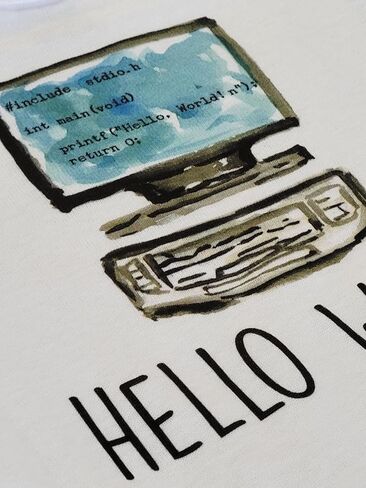 #include stdio.h
int main(void)
printf("Hello, World! n");
return 0;
HELLO W